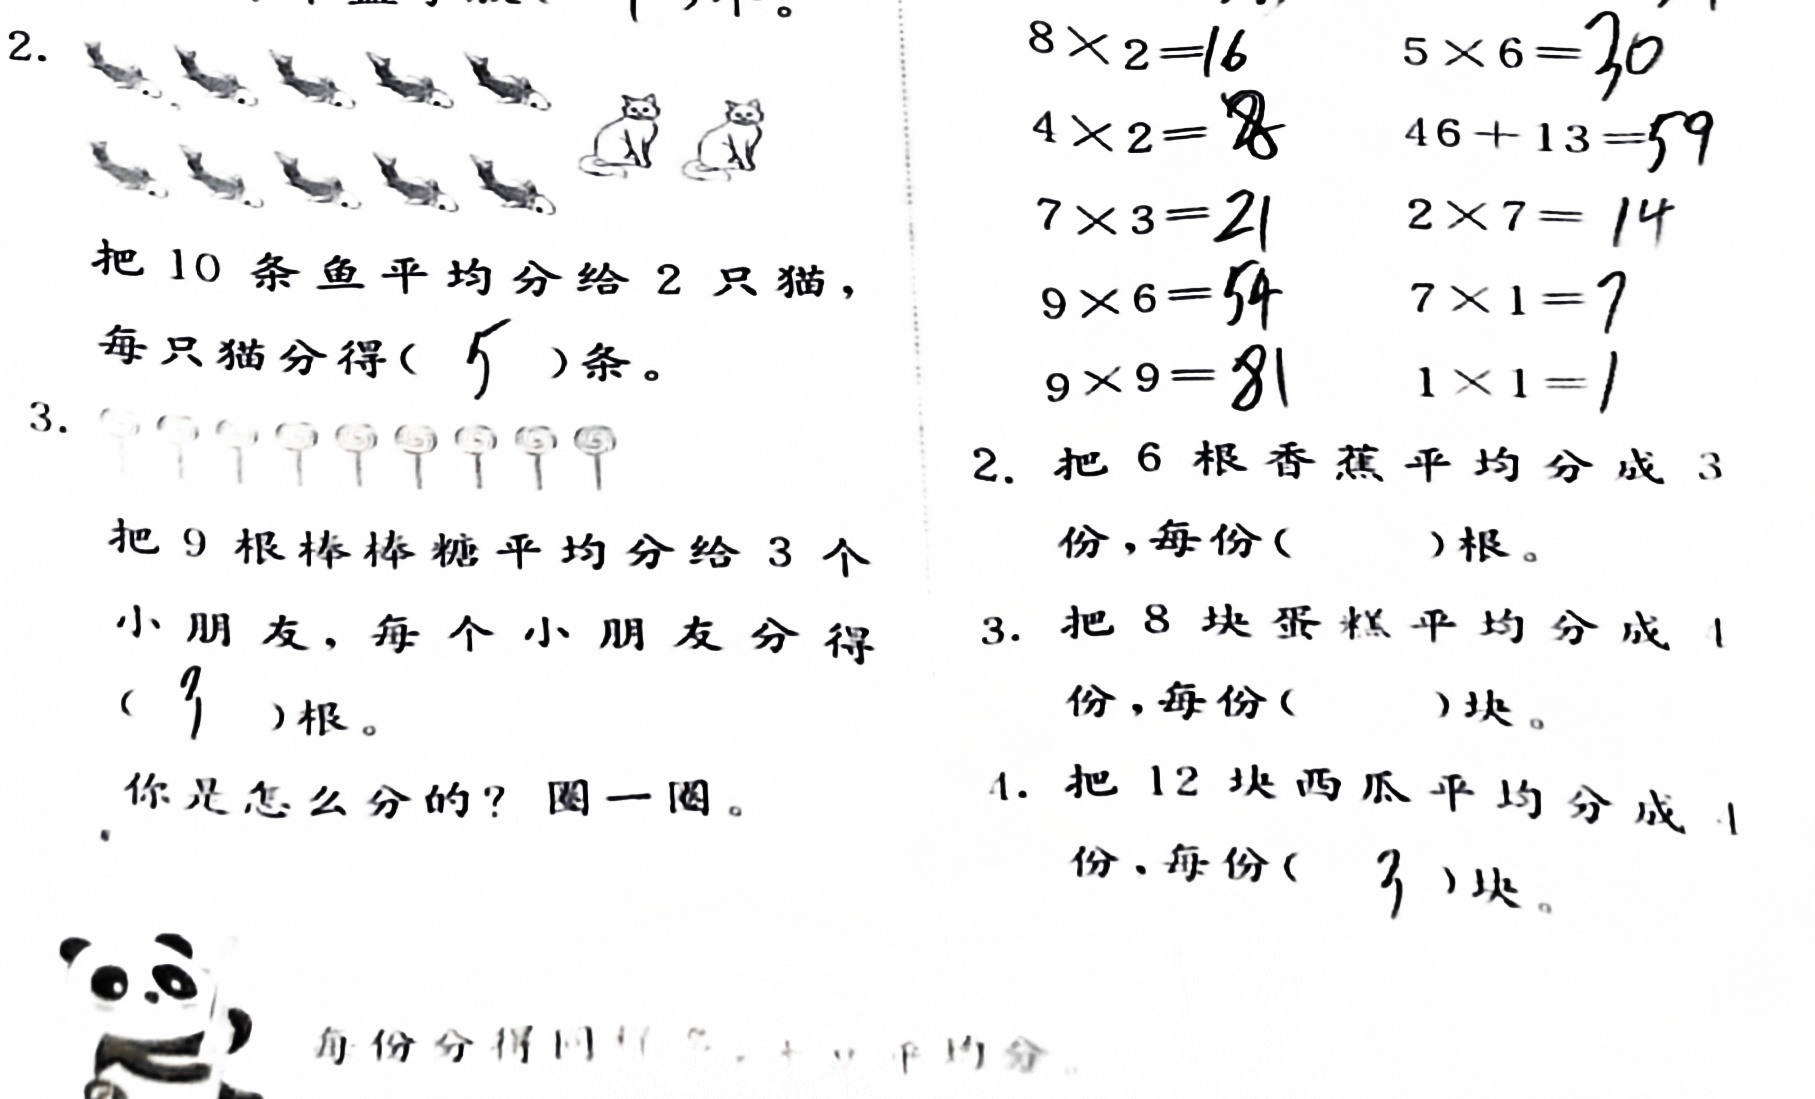 2.
把 10 条鱼平均分给 2 只猫，
每只猫分得( 5 )条。
3.
把 9 根棒棒糖平均分给 3 个
小朋友，每个小朋友分得
( 3 )根。
你是怎么分的？圈一圈。
每份分得同 平均分
8×2=16 5×6=30
4×2=8 46+13=59
7×3=21 2×7=14
9×6=54 7×1=7
9×9=81 1×1=1
2. 把 6 根香蕉平均分成 3
份，每份( )根。
3. 把 8 块蛋糕平均分成
份，每份( )块。
4. 把 12 块西瓜平均分成
份，每份( 3 )块。